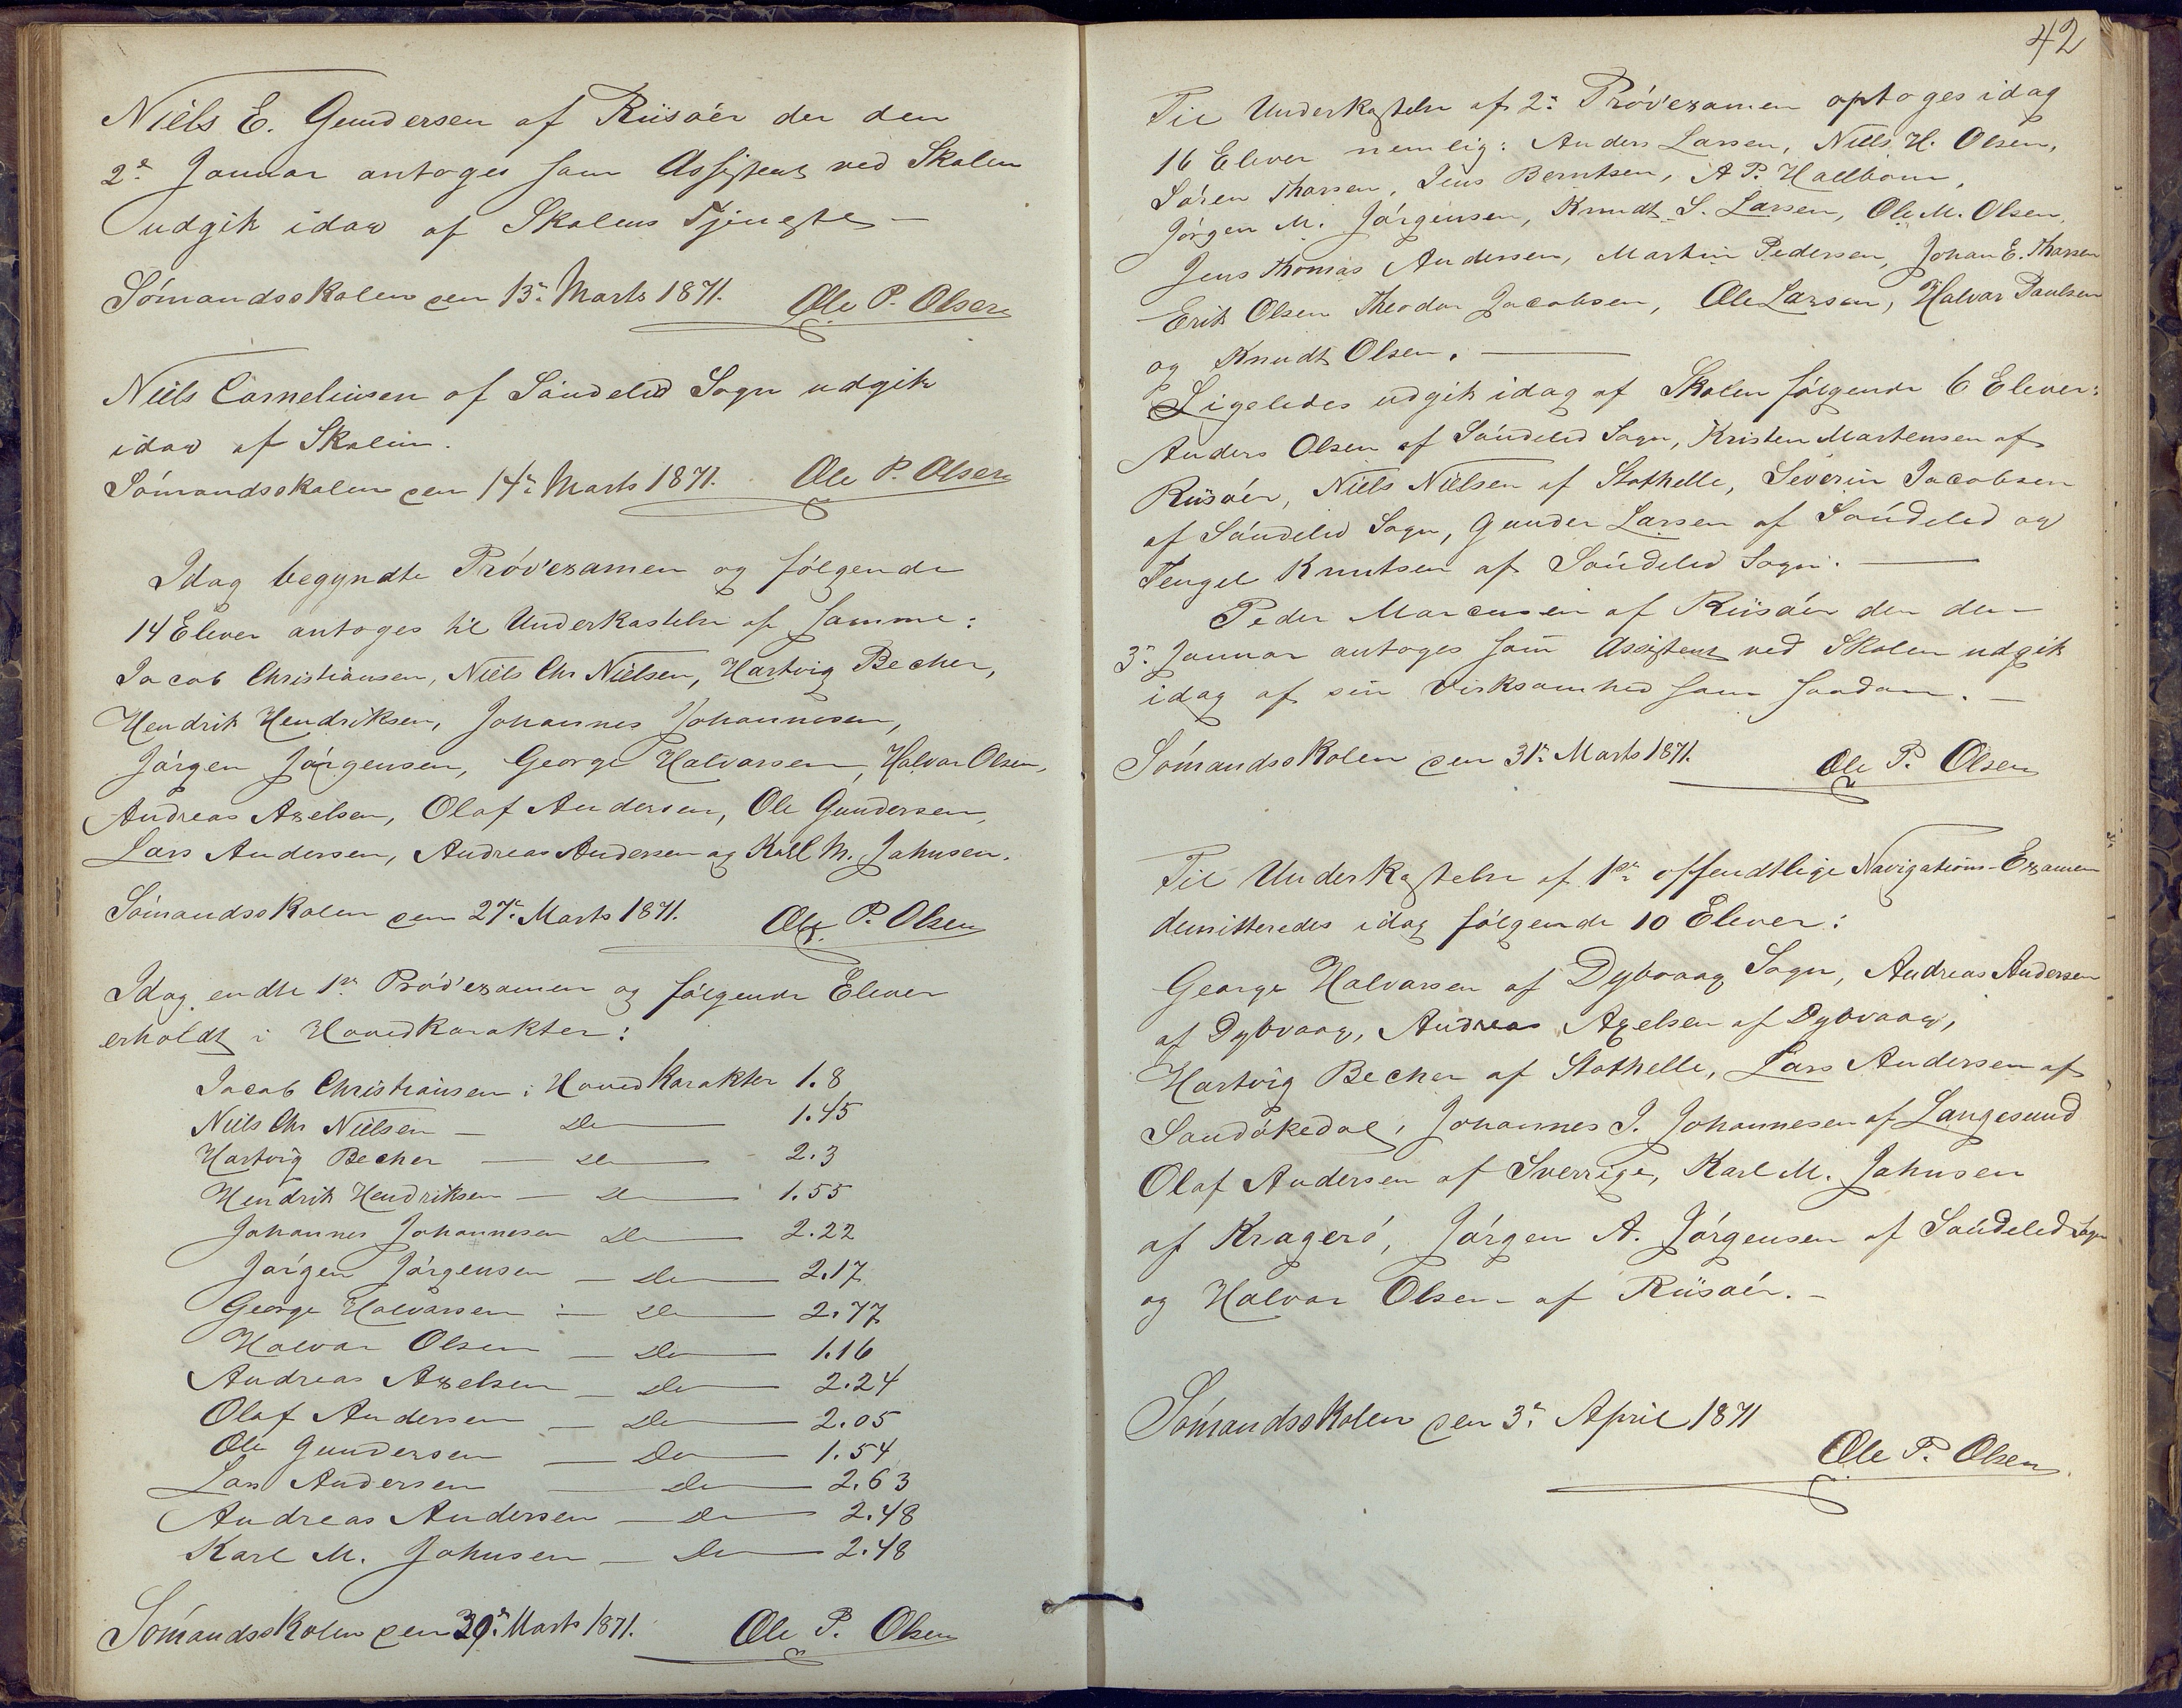 Niels E. Gundersen af Riisöer der den
2de Januar antoges som Assistent ved Skolen
udgik idag af Skolens Tjeneste —
Sömandsskolen den 13de Marts 1871. Ole P. Olsen
Niels Corneliusen af Söndeled Sogn udgik
idag af Skolen.
Sömandsskolen den 14de Marts 1871. Ole P. Olsen
Idag begyndte Pröv'examen og følgende
14 Elever antoges til Underkastelse af samme:
Jacob Christiansen, Niels Chr Nielsen, Hartvig Becher,
Hendrik Hendriksen, Johannes Johannesen,
Jörgen Jörgensen, George Halvorsen, Halvor Olsen,
Andreas Axelsen, Olaf Andersen, Ole Gundersen,
Lars Andersen, Andreas Andersen og Karl M. Johnsen.
Sömandsskolen den 27de Marts 1871. Ole P. Olsen
Idag endte 1ste Pröv'examen og følgende Elever
erholdt i Hovedkarakter:
Jacob Christiansen i Hovedkarakter 1.8
Niels Chr Nielsen — Do — 1.45
Hartvig Becher — Do — 2.3
Hendrik Hendriksen — Do — 1.55
Johannes Johannesen Do — 2.22
Jörgen Jörgensen — Do — 2.17
George Halvorsen — Do — 2.77
Halvor Olsen — Do — 1.16
Andreas Axelsen — Do — 2.24
Olaf Andersen — Do — 2.05
Ole Gundersen — Do — 1.54
Lars Andersen — Do — 2.63
Andreas Andersen — Do — 2.48
Karl M. Johnsen — Do — 2.48
Sömandsskolen den 29de Marts 1871. Ole P. Olsen
42
Til Underkastelse af 2den Pröv'examen optoges idag
16 Elever nemlig: Anders Larsen, Niels H. Olsen,
Sören Thorsen, Jens Berntsen, A P. Hallbom,
Jörgen M. Jörgensen, Knudt S. Larsen, Ole M. Olsen,
Jens Thomas Andersen, Martin Pedersen, Johan E. Thorsen
Erik Olsen Theodor Jacobsen, Ole Larsen, Halvor Paulsen
og Knudt Olsen. —
Ligeledes udgik idag af Skolen følgende 6 Elever:
Anders Olsen af Söndeled Sogn, Kristen Martensen af
Riisöer, Niels Nielsen af Stathelle, Severin Jacobsen
af Söndeled Sogn, Gunder Larsen af Söndeled og
Tengel Knutsen af Söndeled Sogn. —
Peder Marcussen af Riisöer der den
3de Januar antoges som Assistent ved Skolen udgik
idag af sin Virksomhed som saadan. —
Sömandsskolen den 31te Marts 1871. Ole P. Olsen
Til Underkastelse af 1ste offendtlige Navigations-Examen
demitteredes idag følgende 10 Elever:
George Halvorsen af Dybvaag Sogn, Andreas Andersen
af Dybvaag, Andreas Axelsen af Dybvaag,
Hartvig Becher af Stathelle, Lars Andersen af
Sandökedal, Johannes J. Johannesen af Langesund
Olaf Andersen af Sverrige, Karl M. Johnsen
af Kragerö, Jörgen A. Jörgensen af Söndeled Sogn
og Halvor Olsen af Riisöer. —
Sömandsskolen den 3de April 1871
Ole P. Olsen